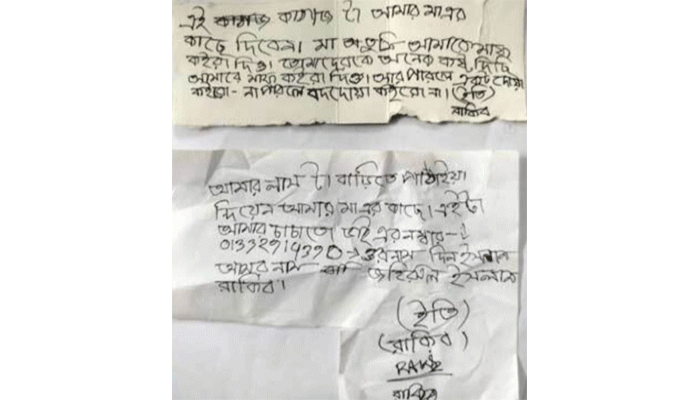 এই কাগজ কাগজ টা আমার মা এর
কাছে দিবেন। মা তুমি আমাকে মাফ
কইরা দিও। তোমাদেরকে অনেক কষ্ট দিছি
আমারে মাফ কইরা দিও। আর পারলে একটু দোয়া
কইরো - না পারলে বদদোয়া কইরো না। (ইতি)
রাকিব
আমার লাস টা বাড়িতে পাঠাইয়া
দিয়েন আমার মা এর কাছে। এইটা
আমার চাচাতো ভাই এর নম্বার -
01332914390 ওর নাম দিন ইসলাম
আমার নাম জহিরুল ইসলাম
রাকিব।
(ইতি)
(রাকিব)
রাকিব